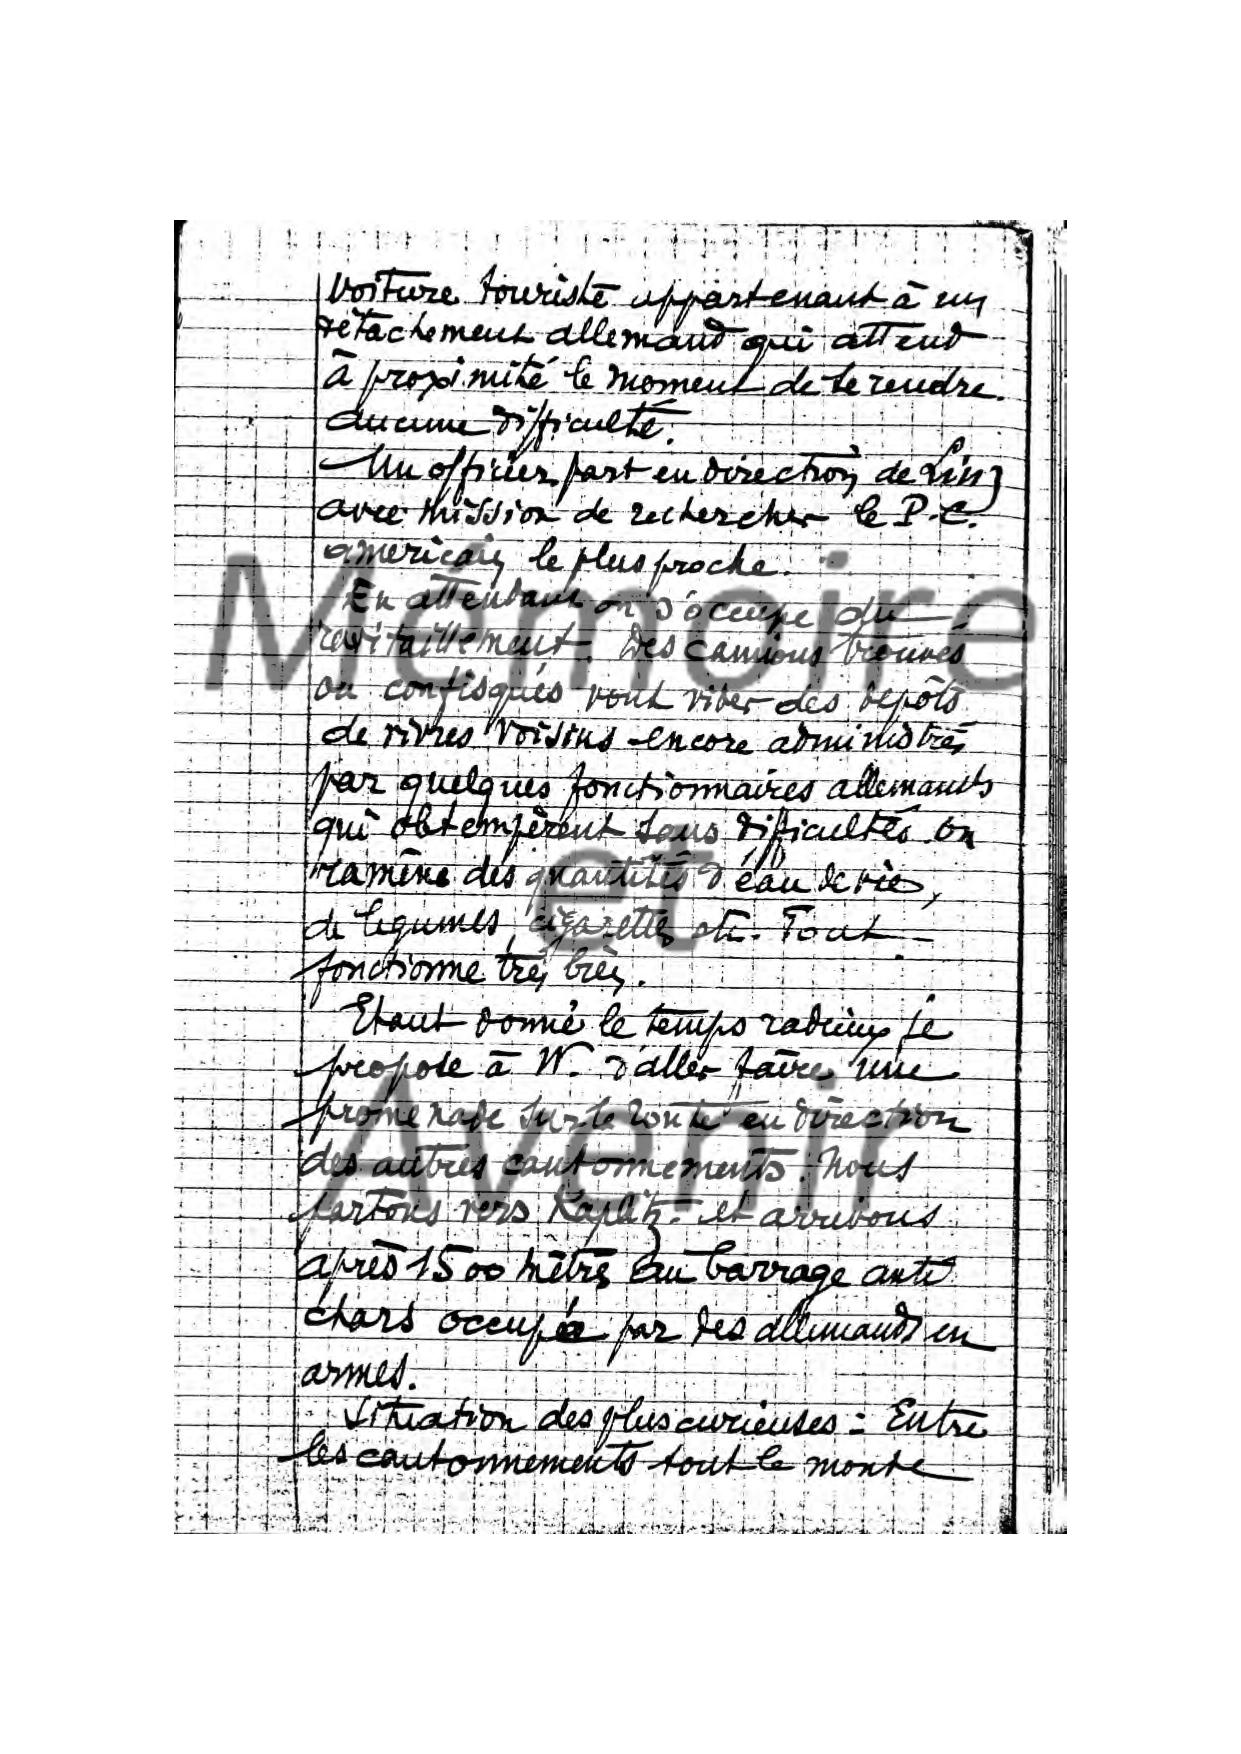 voiture touriste appartenant à un
détachement allemand qui attend
à proximité le moment de se rendre.
aucune difficulté.
Un officier part en direction de Linz
avec mission de rechercher le P.C.
americain le plus proche.
En attendant on s'occupe du
ravitaillement. Des camions trouvés
ou confisqués vont vider des dépôts
de vivres voisins encore administrés
par quelques fonctionnaires allemands
qui obtempèrent sans difficultés. On
ramène des quantités d'eau de vie,
de légumes, cigarettes etc. Tout
fonctionne très bien.
Etant donné le temps radieux je
propose à W. d'aller faire une
promenade sur la route en direction
des autres cantonnements. Nous
partons vers Kaplitz et arrivons
après 1500 mètres au barrage anti
chars occupé par des allemands en
armes.
Situation des plus curieuses = Entre
les cantonnements tout le monde
Mémoire
et
Avenir